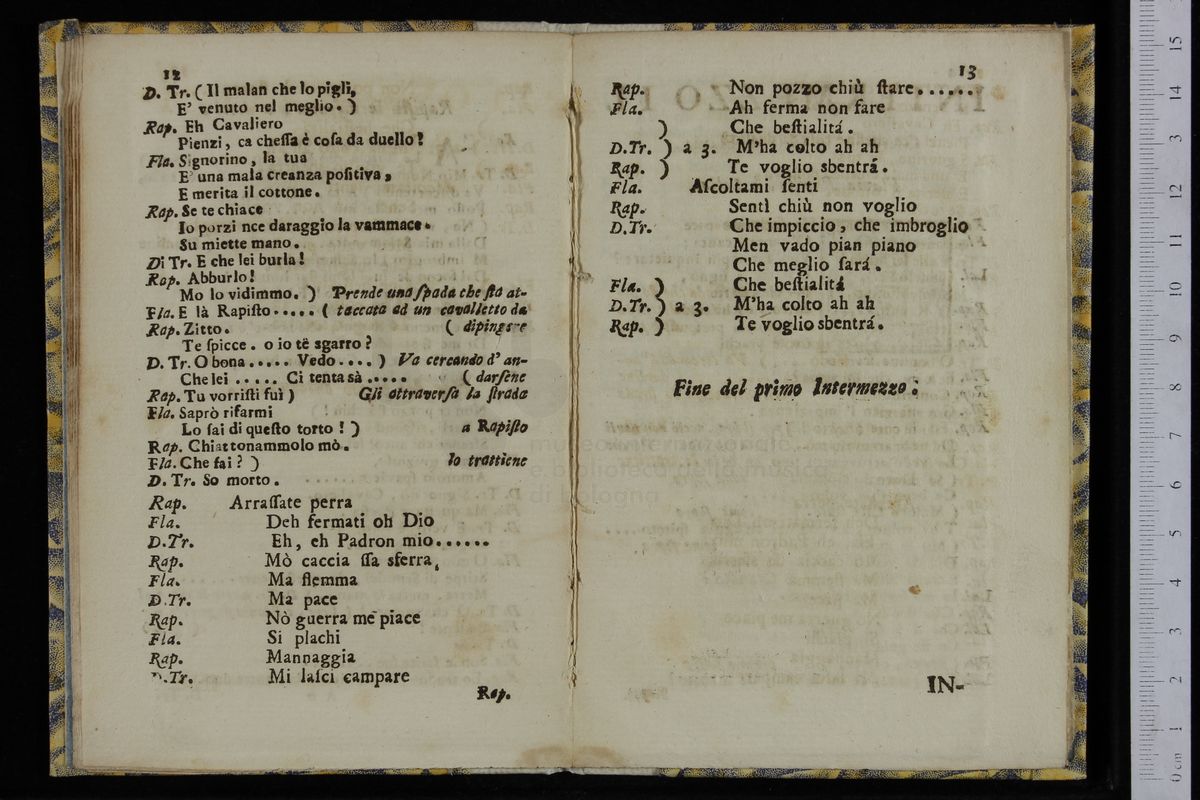 12
D. Tr. ( Il malan che lo pigli,
E' venuto nel meglio. )
Rap. Eh Cavaliero
Pienzi, ca cheſſa è coſa da duello!
Fla. Signorino, la tua
E' una mala creanza poſitiva,
E merita il cottone.
Rap. Se te chiace
Io porzi nce daraggio la vammace.
Su miette mano.
Di Tr. E che lei burla!
Rap. Abburlo!
Mo lo vidimmo. ) Prende una ſpada che ſta at-
Fla. E là Rapiſto..... ( taccata ad un cavalletto da
Rap. Zitto. ( dipingere
Te ſpicce. o io të sgarro?
D. Tr. O bona..... Vedo.... ) Va cercando d' an-
Che lei ..... Ci tenta sà ..... ( darſene
Rap. Tu vorriſti fui ) Gli attraverſa la ſtrada
Fla. Saprò rifarmi
Lo ſai di queſto torto! ) a Rapiſto
Rap. Chiattonammolo mò.
Fla. Che fai? ) lo trattiene
D. Tr. So morto.
Rap. Arraſſate perra
Fla. Deh fermati oh Dio
D.Tr. Eh, eh Padron mio......
Rap. Mò caccia ſſa sferra,
Fla. Ma flemma
D.Tr. Ma pace
Rap. Nò guerra me piace
Fla. Si plachi
Rap. Mannaggia
D.Tr. Mi laſci campare
Rap.
13
Rap. Non pozzo chiù ſtare......
Fla. Ah ferma non fare
) Che beſtialitá.
D.Tr. ) a 3. M'ha colto ah ah
Rap. ) Te voglio sbentrá.
Fla. Aſcoltami ſenti
Rap. Sentì chiù non voglio
D.Tr. Che impiccio, che imbroglio
Men vado pian piano
Che meglio ſará.
Fla. ) Che beſtialitá
D.Tr. ) a 3. M'ha colto ah ah
Rap. ) Te voglio sbentrá.
Fine del primo Intermezzo:
IN-
museo internazionale
e biblioteca della musica
di bologna
15
14
13
12
11
10
9
8
7
6
5
4
3
2
1
0 cm